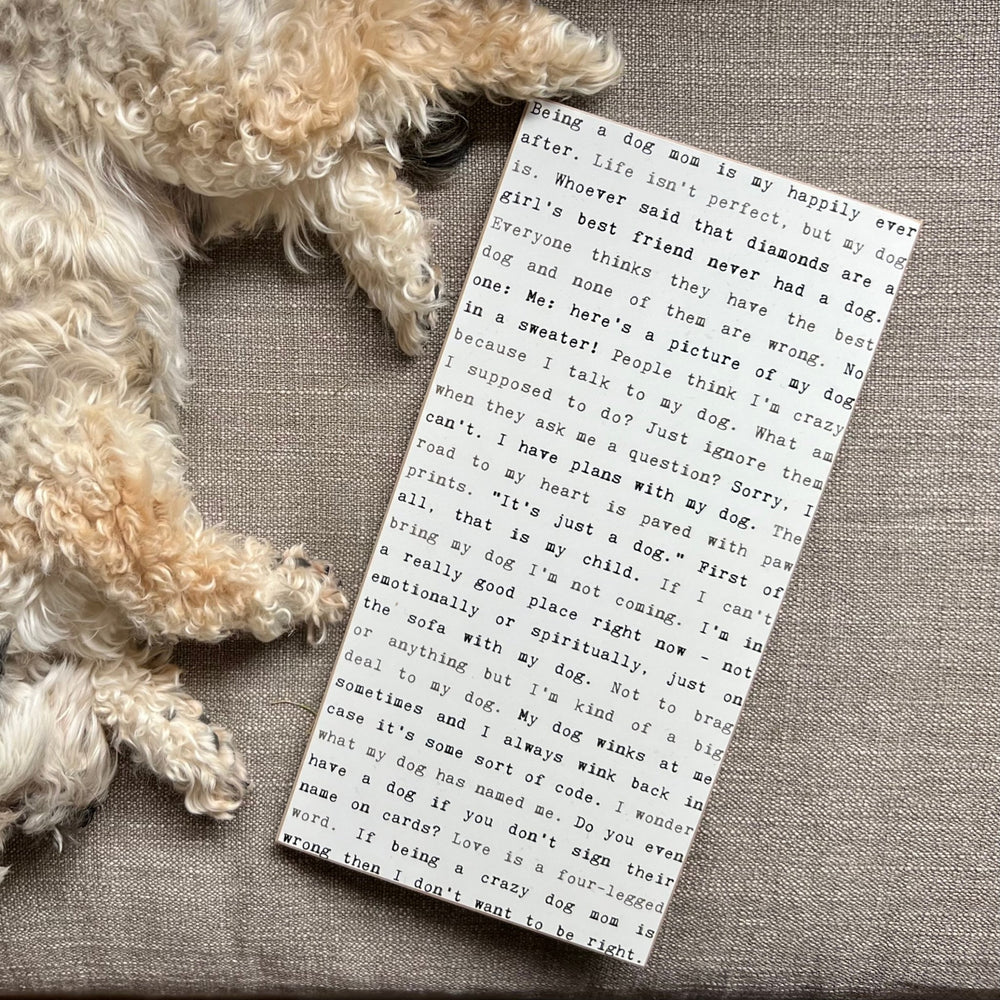 Being a dog mom is my happily ever
after. Life isn't perfect, but my dog
is. Whoever said that diamonds are a
girl's best friend never had a dog.
Everyone thinks they have the best
dog and none of them are wrong. No
one: Me: here's a picture of my dog
in a sweater! People think I'm crazy
because I talk to my dog. What am
I supposed to do? Just ignore them
when they ask me a question? Sorry, I
can't. I have plans with my dog. The
road to my heart is paved with paw
prints. "It's just a dog." First of
all, that is my child. If I can't
bring my dog I'm not coming. I'm in
a really good place right now - not
emotionally or spiritually, just on
the sofa with my dog. Not to brag
or anything but I'm kind of a big
deal to my dog. My dog winks at me
sometimes and I always wink back in
case it's some sort of code. I wonder
what my dog has named me. Do you even
have a dog if you don't sign their
name on cards? Love is a four-legged
word. If being a crazy dog mom is
wrong then I don't want to be right.